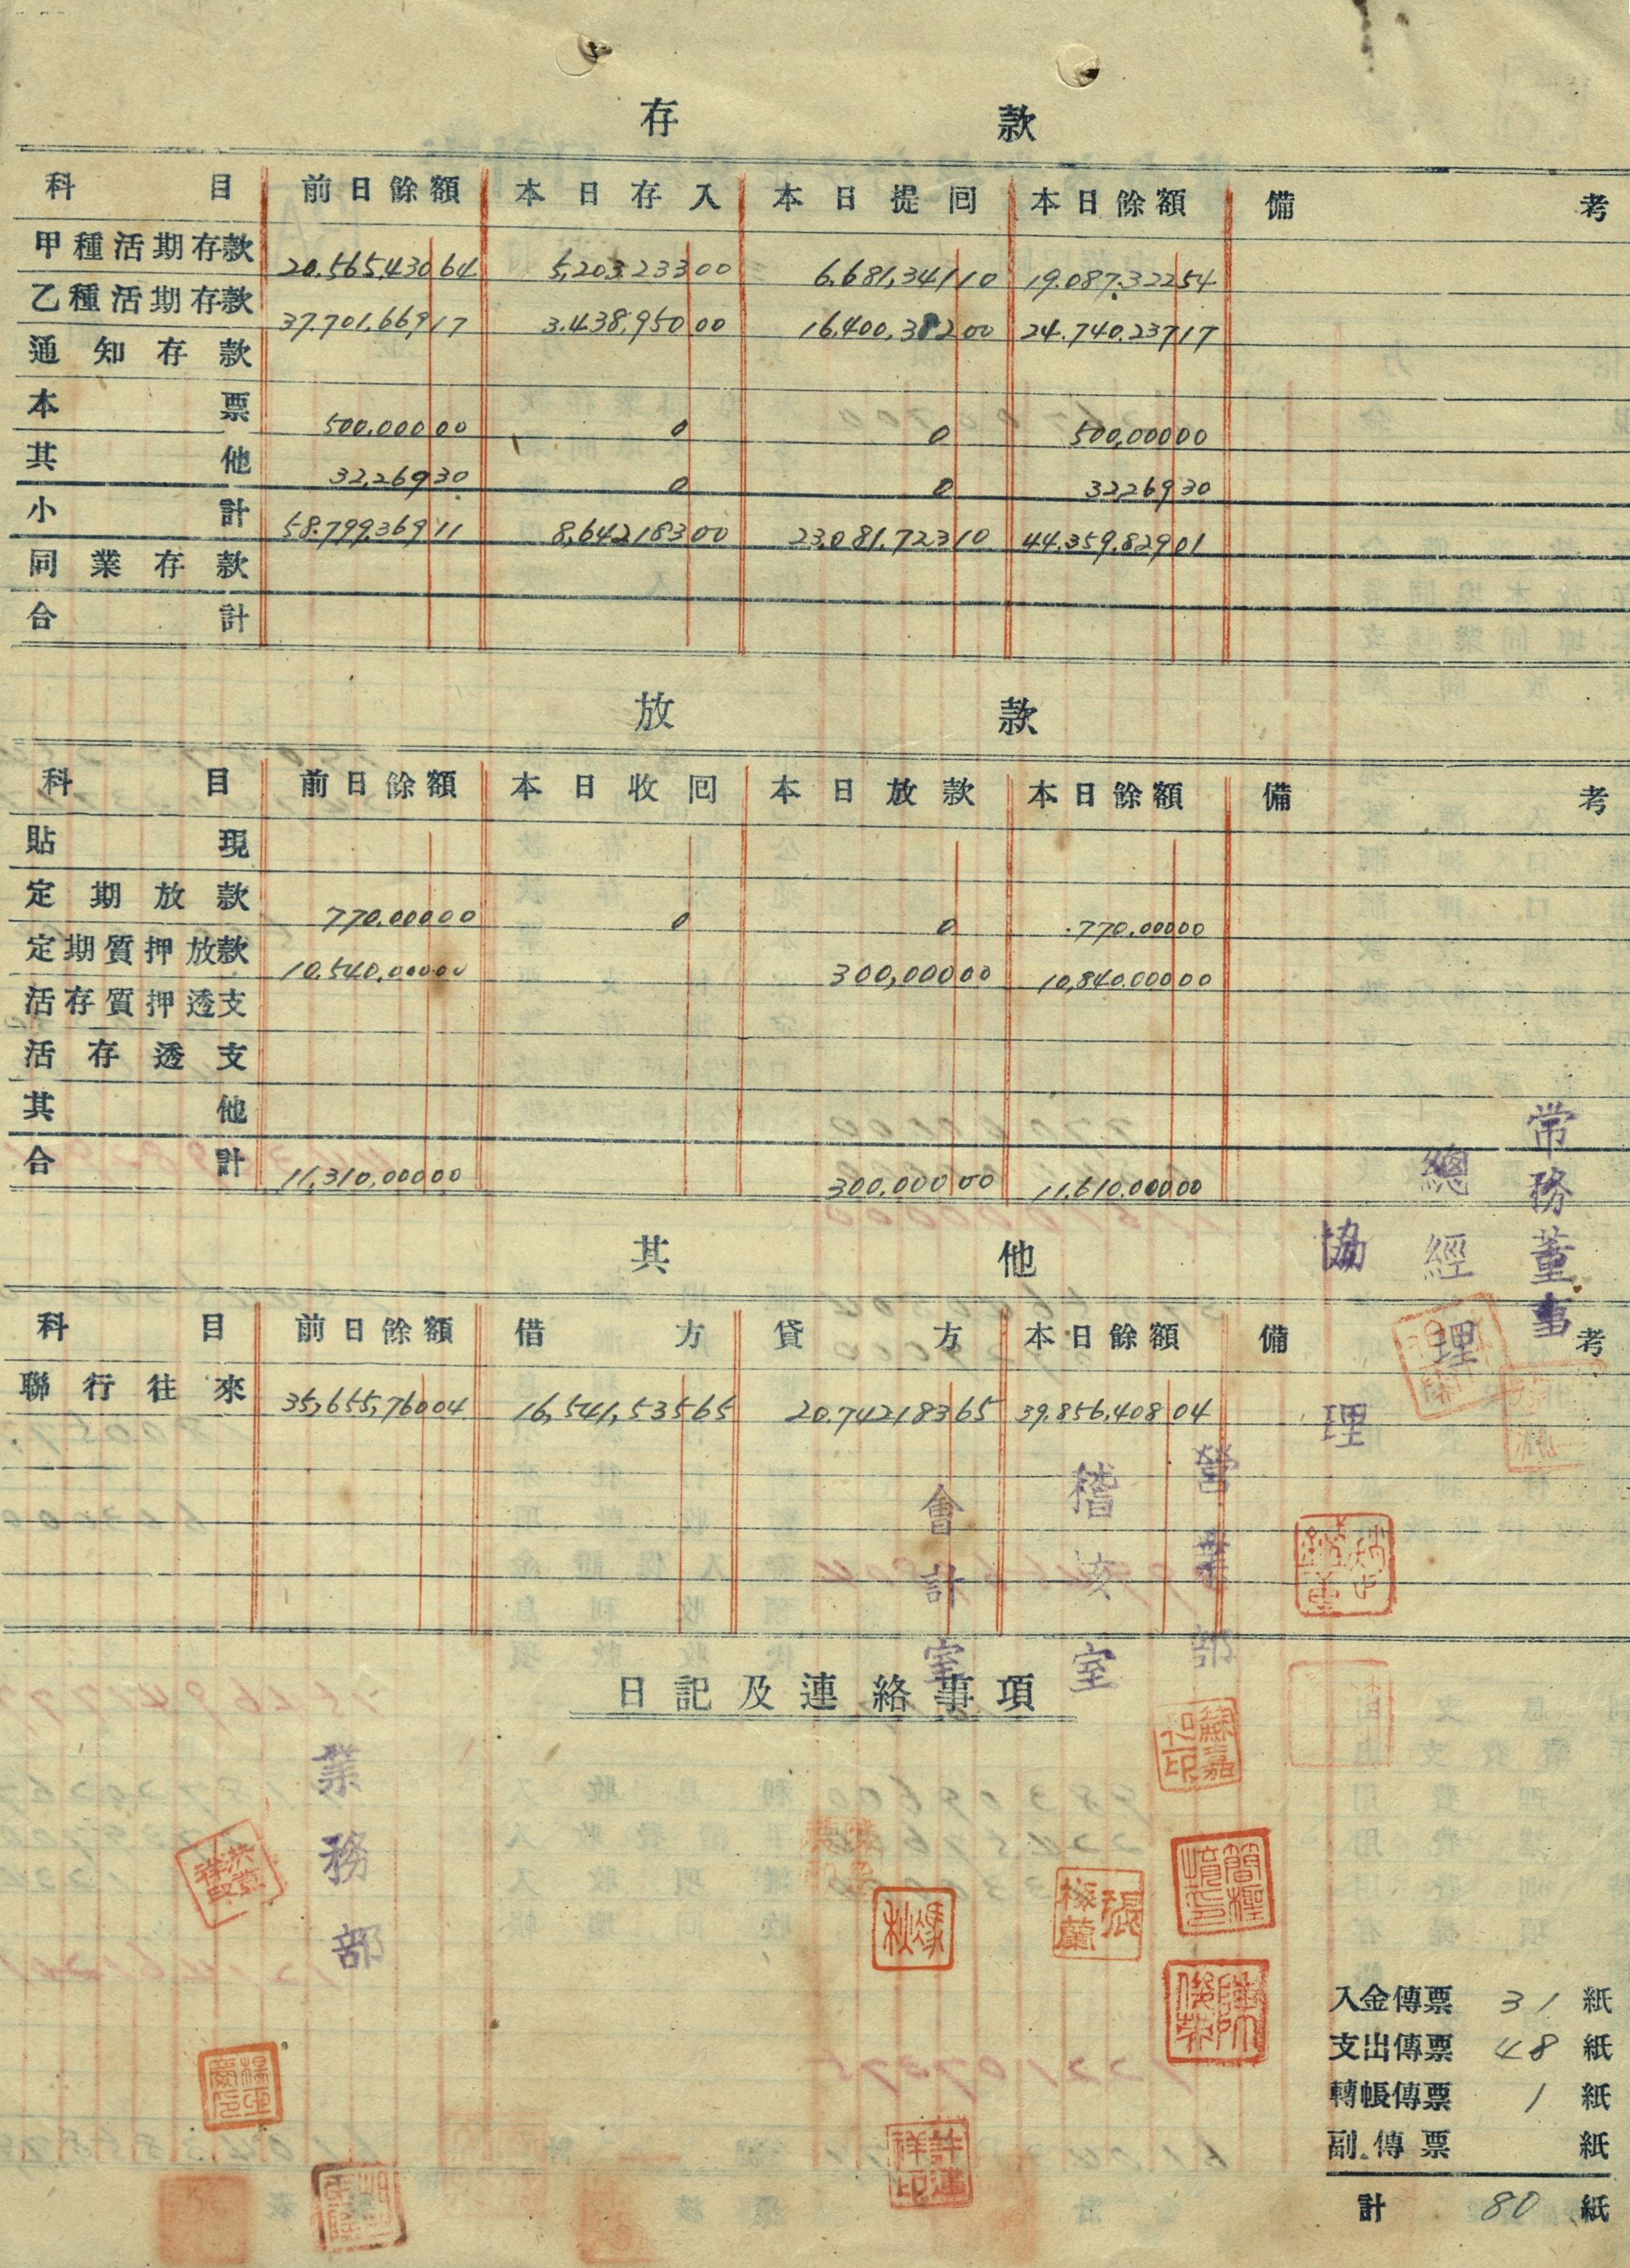 存款
科目 前日餘額 本日存入 本日提囘 本日餘額 備考
甲種活期存款 20,565,430 64 5,203,233 00 6,681,341 10 19,087,322 54
乙種活期存款 37,701,669 17 3,438,950 00 16,400,382 00 24,740,237 17
通知存款
本票 500,000 00 0 0 500,000 00
其他 32,269 30 0 0 32,269 30
小計 58,799,369 11 8,642,183 00 23,081,723 10 44,359,829 01
同業存款
合計
放款
科目 前日餘額 本日收囘 本日放款 本日餘額 備考
貼現
定期放款 770,000 00 0 0 770,000 00
定期質押放款 10,540,000 00 300,000 00 10,840,000 00
活存質押透支
活存透支
其他
合計 11,310,000 00 300,000 00 11,610,000 00
其他
科目 前日餘額 借方 貸方 本日餘額 備考
聯行往來 35,655,760 04 16,541,535 65 20,742,183 65 39,856,408 04
常務董事
總經理
協理
營業部
稽核室
會計室
日記及連絡事項
業務部
張梅蘭
入金傳票 31 紙
支出傳票 48 紙
轉帳傳票 1 紙
副傳票 紙
計 80 紙